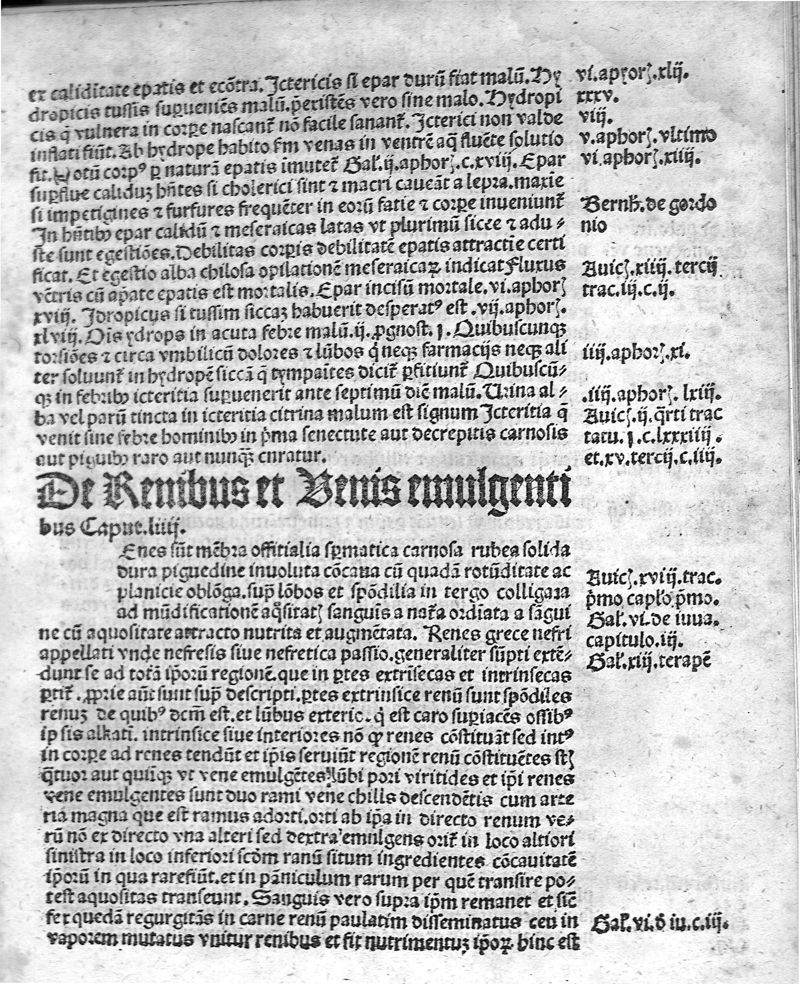 ex caliditate epatis et ecõtra. Ictericis si epar durũ fiat malũ. Hy
dropicis tussis superueniẽs malũ. p̃existẽs vero sine malo. Hydropi
cis q̃ vulnera in corpe nascant̃ nõ facile sanant̃. Icterici non valde
inflati fiũt. Ab hydrope habito fm venas in ventrẽ aq̃ fluẽte solutio
fit. Totũ corpꝰ p naturã epatis imutet̃ Gal̃. ij. aphorꝫ. c. xviij. Epar
supflue caliduꝫ hñtes si cholerici sint ⁊ macri caueãt a lepra. maxie
si impetigines ⁊ furfures frequẽter in eorũ fatie ⁊ corpe inueniunt̃
In hñtibꝰ epar calidũ ⁊ meseraicas latas vt plurimũ sicce ⁊ adu-
ste sunt egestiões. Debilitas corpis debilitatẽ epatis attractie certi
ficat. Et egestio alba chilosa opilationẽ meseraicaꝝ indicat Fluxus
vẽtris cũ apate epatis est mortalis. Epar incisũ mortale. vi. aphorꝫ
xviij. Idropicus si tussim siccaꝫ habuerit desperatꝰ est. vij. aphorꝫ.
xlviij. Ois ydrops in acuta febre malũ. ij. p̱gnost. ꝛ. Quibuscunqꝫ
torsiões ⁊ circa vmbilicũ dolores ⁊ lũbos q̃ neqꝫ farmacijs neqꝫ ali
ter soluunt̃ in hydropẽ siccã q̃ tympaites dicit̃ p̱fitiunt̃. Quibuscũ-
qꝫ in febribꝰ icteritia supuenerit ante septimũ diẽ malũ. Urina al-
ba vel parũ tincta in icteritia citrina malum est signum Icteritia q̃
venit sine febre hominibꝰ in p̃ma senectute aut decrepitis carnosis
aut piguibꝰ raro aut nunqꝫ curatur.
De Renibus et Venis emulgenti
bus Caput. liiij.
Enes sũt mẽbra offitialia sp̱matica carnosa rubea solida
dura piguedine inuoluta cõcaua cũ quadã rotũditate ac
planicie oblõga. sup̱ lõbos et spõdilia in tergo colligata
ad mũdificationẽ aq̃sitatꝫ sanguis a nat̃a ordiata a sãgui
ne cũ aquositate attracto nutrita et augmẽtata. Renes grece nefri
appellati vnde nefresis siue nefretica passio. generaliter sũpti extẽ-
dunt se ad totã ip̃orũ regionẽ. que in p̱tes extrisecas et intrinsecas
p̱tit̃. p̱prie aũt sunt sup̱ descripti. p̱tes extrinsice renũ sunt spõdiles
renuꝫ de quibꝰ dcm̃ est. et lũbus exteriꝰ. q̃ est caro sup̱iacẽs ossibꝰ
ip̃sis alkati. intrinsice siue interiores nõ q̃ renes cõstituãt sed intꝰ
in corpe ad renes tendũt et ip̃is seruiũt regionẽ renũ cõstituẽtes sꝫ
q̃tuor aut quiqꝫ vt vene emulgẽtes lũbi pori viritides et ip̃i renes
vene emulgentes sunt duo rami vene chilis descendẽtis cum arte
ria magna que est ramus adorti. orti ab ip̃a in directo renum ve-
rũ nõ ex directo vna alteri sed dextra emulgens orit̃ in loco altiori
sinistra in loco inferiori scõm ranũ situm ingredientes cõcauitatẽ
ip̃orũ in qua rarefiũt. et in pãniculum rarum per quẽ transire po-
test aquositas transeunt. Sanguis vero supra ip̃m remanet et siẽ
fex quedã regurgitãs in carne renũ paulatim disseminatus ceu in
vaporem mutatus vnitur renibus et fit nutrimentuꝫ ip̃oꝝ. hinc est
vi. aphorꝫ. xlij.
xxxv.
viij.
v. aphorꝫ. vltimo
vi. aphorꝫ. xiiij.
Bernh̃. de gordo
nio
Auicꝫ. xiiij. tercij
trac. iij. c. ij.
iiij. aphorꝫ. xi.
.iiij. aphorꝫ. lxiij.
Auicꝫ. ij. q̃rti trac
tatu. ꝛ. c. lxxxiiij.
et. xv. tercij. c. iiij.
Auicꝫ. xviij. trac.
p̃mo capl̃o p̃mo.
Gal̃. vi. de iuua.
capitulo. iij.
Gal̃. xiij. terapẽ
Gal̃. vi. ð iu. c. iij.